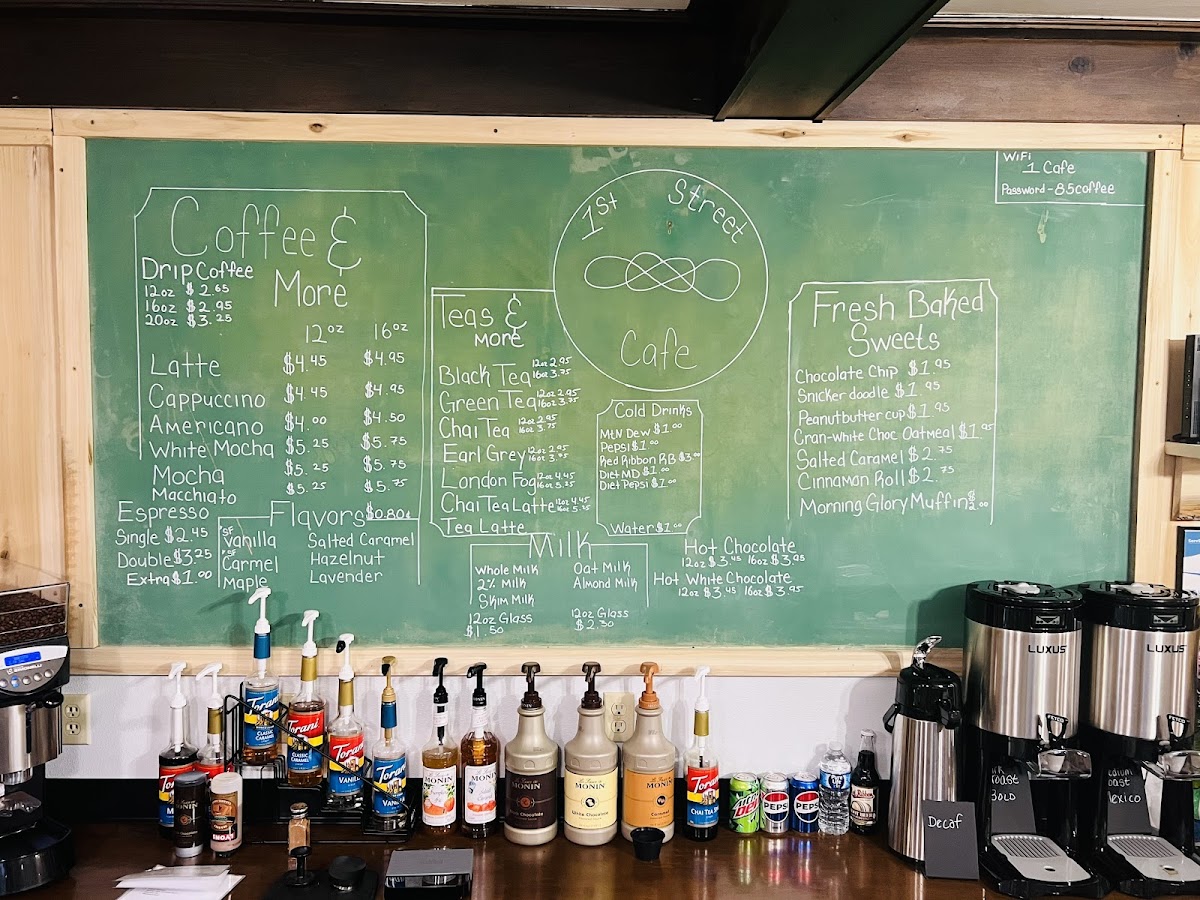 WiFi
1 Cafe
Password - 85coffee
1st Street
Cafe
Coffee &
More
Drip Coffee
12oz $2.65
16oz $2.95
20oz $3.25
12oz 16oz
Latte $4.45 $4.95
Cappuccino $4.45 $4.95
Americano $4.00 $4.50
White Mocha $5.25 $5.75
Mocha $5.25 $5.75
Macchiato $5.25 $5.75
Espresso
Single $2.45
Double $3.25
Extra $1.00
Flavors $0.80¢
SF Vanilla
SF Carmel
Maple
Salted Caramel
Hazelnut
Lavender
Teas &
more
Black Tea 12oz 2.95 16oz 3.75
Green Tea 12oz 2.95 16oz 3.75
Chai Tea 12oz 2.95 16oz 3.75
Earl Grey 12oz 2.95 16oz 3.75
London Fog 12oz 4.45 16oz 5.25
Chai Tea Latte 12oz 4.45 16oz 5.25
Tea Latte
Cold Drinks
Mtn Dew $1.00
Pepsi $1.00
Red Ribbon RB $3.00
Diet MD $1.00
Diet Pepsi $1.00
Water $1.00
Milk
Whole Milk
2% Milk
Skim Milk
12oz Glass
$1.50
Oat Milk
Almond Milk
12oz Glass
$2.30
Hot Chocolate
12oz $3.45 16oz $3.95
Hot White Chocolate
12oz $3.45 16oz $3.95
Fresh Baked
Sweets
Chocolate Chip $1.95
Snicker doodle $1.95
Peanutbutter cup $1.95
Cran-white Choc Oatmeal $1.95
Salted Caramel $2.75
Cinnamon Roll $2.75
Morning Glory Muffin $2.00
Torani
CLASSIC CARAMEL
Torani
CLASSIC CARAMEL
Torani
VANILLA
Torani
VANILLA
MONIN
MONIN
MONIN
MONIN
White Chocolate
MONIN
Caramel
Torani
CHAI TEA
pepsi
pepsi
Decaf
LUXUS
FETCO
Roast
Bold
LUXUS
FETCO
Roast
Mexico